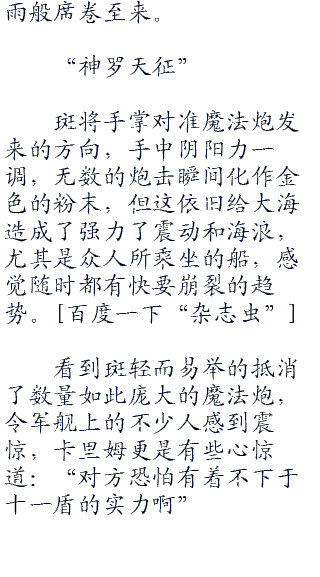 雨般席卷至来。
“神罗天征”
斑将手掌对准魔法炮发
来的方向，手中阴阳力一
调，无数的炮击瞬间化作金
色的粉末，但这依旧给大海
造成了强力了震动和海浪，
尤其是众人所乘坐的船，感
觉随时都有快要崩裂的趋
势。[百度一下“杂志虫”]
看到斑轻而易举的抵消
了数量如此庞大的魔法炮，
令军舰上的不少人感到震
惊，卡里姆更是有些心惊
道：“对方恐怕有着不下于
十一盾的实力啊”